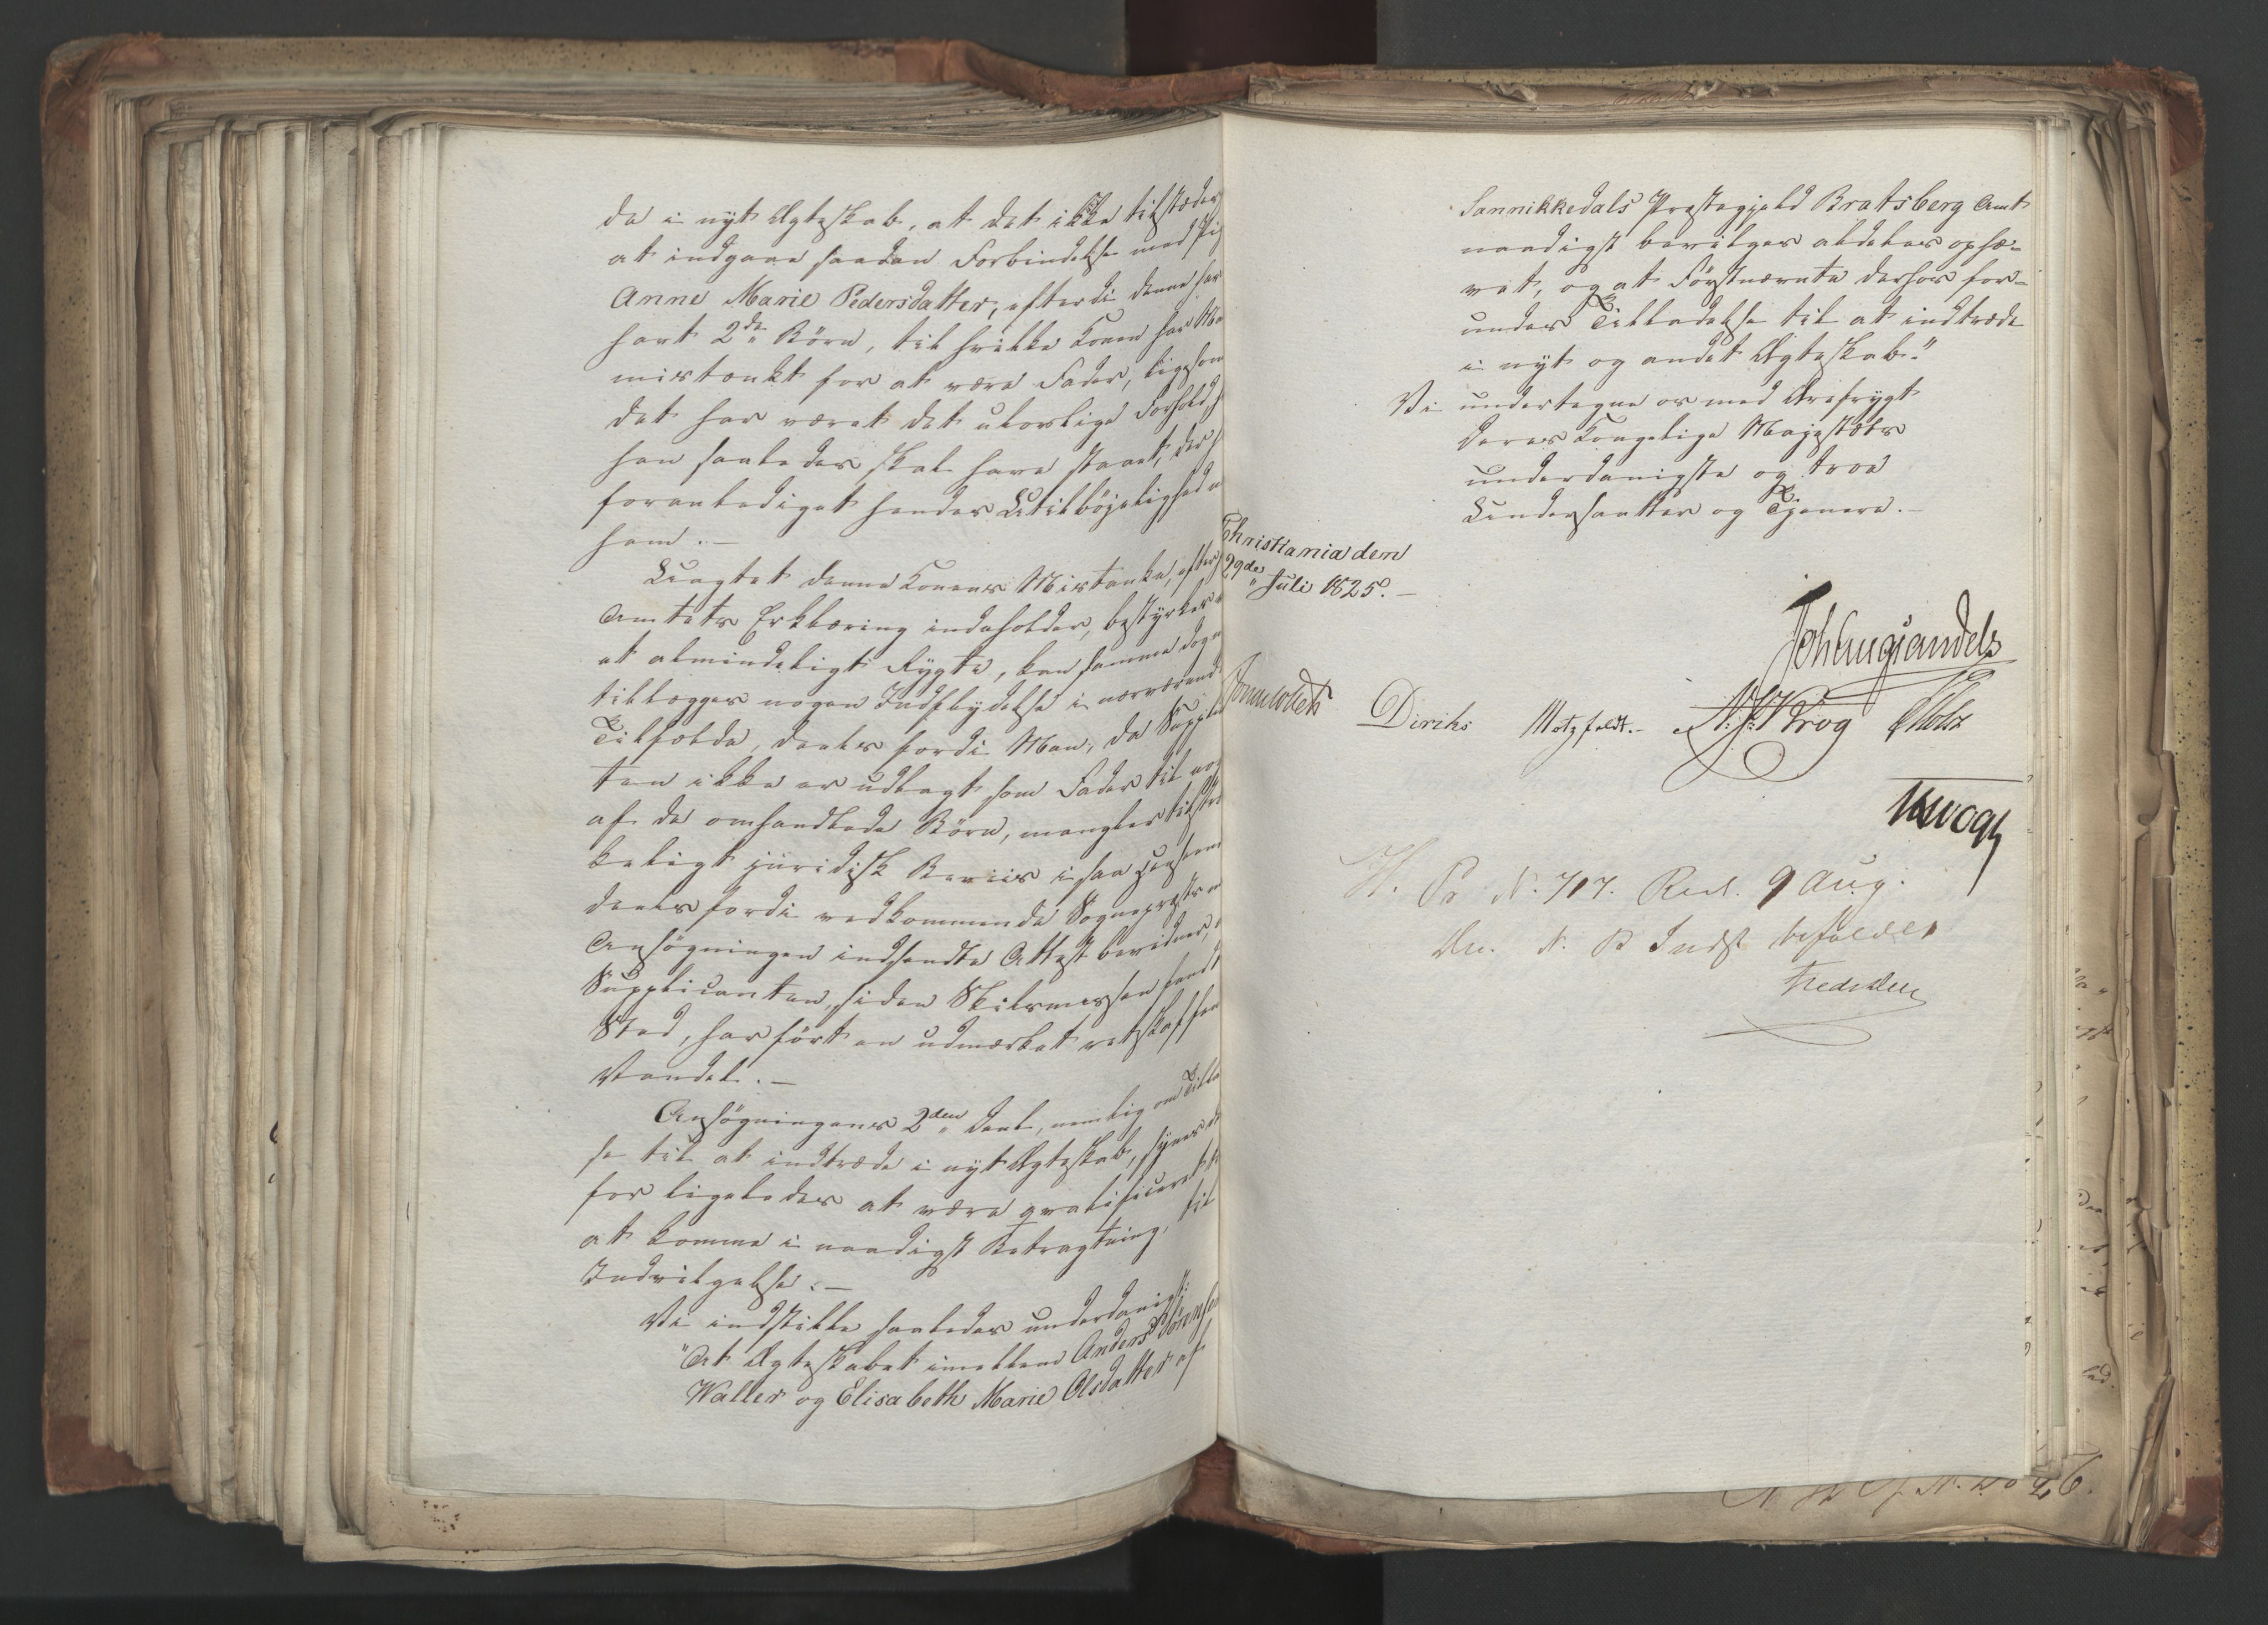 de i nyt Ægteskab, at det ikke tilstædes
at indgaae saadan Forbindelse med Pig
Anne Marie Pedersdatter, efterdi denne har
havt 2de Børn, til hvilke Konen har Ma
mistænkt for at være Fader, ligesom
det har været det ulovlige Forhold,
han saaledes skal have staaet, der h
foranlediget hendes Utilbøjelighed
ham. —
Uagtet denne Konens Mistanke, efter
Amtets Erklæring indeholder, bestyrkes
et almindeligt Rygte, kan samme dog
tillægges nogen Indflydelse i nærværende
Tilfælde, deels fordi Man, da Supplic
ten ikke er udlagt som Fader til no
af de omhandlede Børn, mangler tilstræ
keligt juridisk Beviis i saa Henseen
deels fordi vedkommende Sognepræsts
Ansøgningen indsendte Attest bevidner,
Supplicanten, siden Skilsmissen fandt
Sted, har ført en udmærket retskaffen
Vandel. —
Ansøgningens 2den Deel, nemlig om Tilla
se til at indtræde i nyt Ægteskab, synes
for ligeledes at være qvalificeret
at komme i naadigst Betragtning, til
Indvilgelse. —
Vi indstille saaledes underdanigst:
"At Ægteskabet imellem Anders Sørensen
Waller og Elisabeth Marie Olsdatter af
Sannikkedals Præstegjeld Bratsberg Amt
naadigst bevilges aldeles ophæ-
vet, og at Førstnævnte derhos for-
undes Tilladelse til at indtræde
i nyt og andet Ægteskab."
Vi undertegne os med Ærefrygt
Deres Kongelige Majestæts
underdanigste og troe
Undersaatter og Tjenere. —
Christiania den
29de Juli 1825. —
Sommerhielm
Diriks Motzfeldt. Krog Holst
Vogt
H. Pr. N. 717. Resl. 9 Aug.
N. R Indst. bifaldes